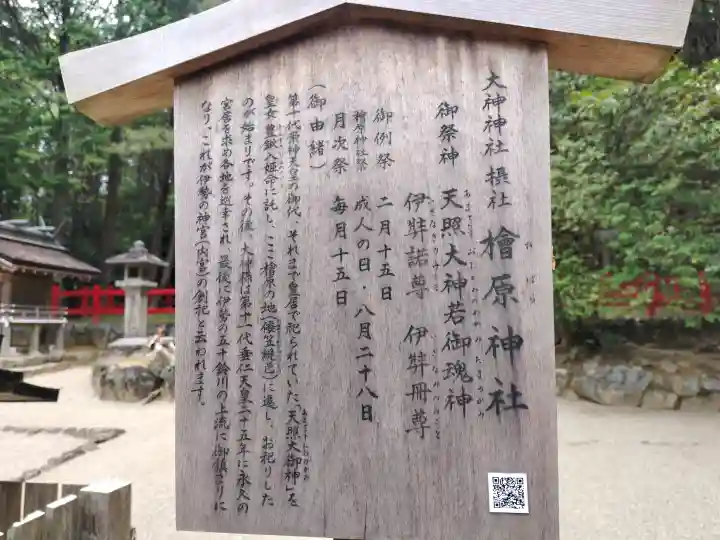 大神神社 摂社 檜原神社
ひばら
御祭神 天照大神若御魂神
伊弉諾尊 伊弉冊尊
御例祭 二月十五日
檜原神社祭 成人の日・八月二十八日
月次祭 毎月十五日
(御由緒)
第十代崇神天皇の御代、それまで皇居で祀られていた「天照大御神」を
皇女豊鍬入姫命に託し、ここ檜原の地(倭笠縫邑)に遷し、お祀りした
のが始まりです。その後、大神様は第十一代垂仁天皇二十五年に永久の
宮居を求め各地を巡幸され、最後に伊勢の五十鈴川の上流に御鎮まりに
なり、これが伊勢の神宮(内宮)の創祀と云われます。